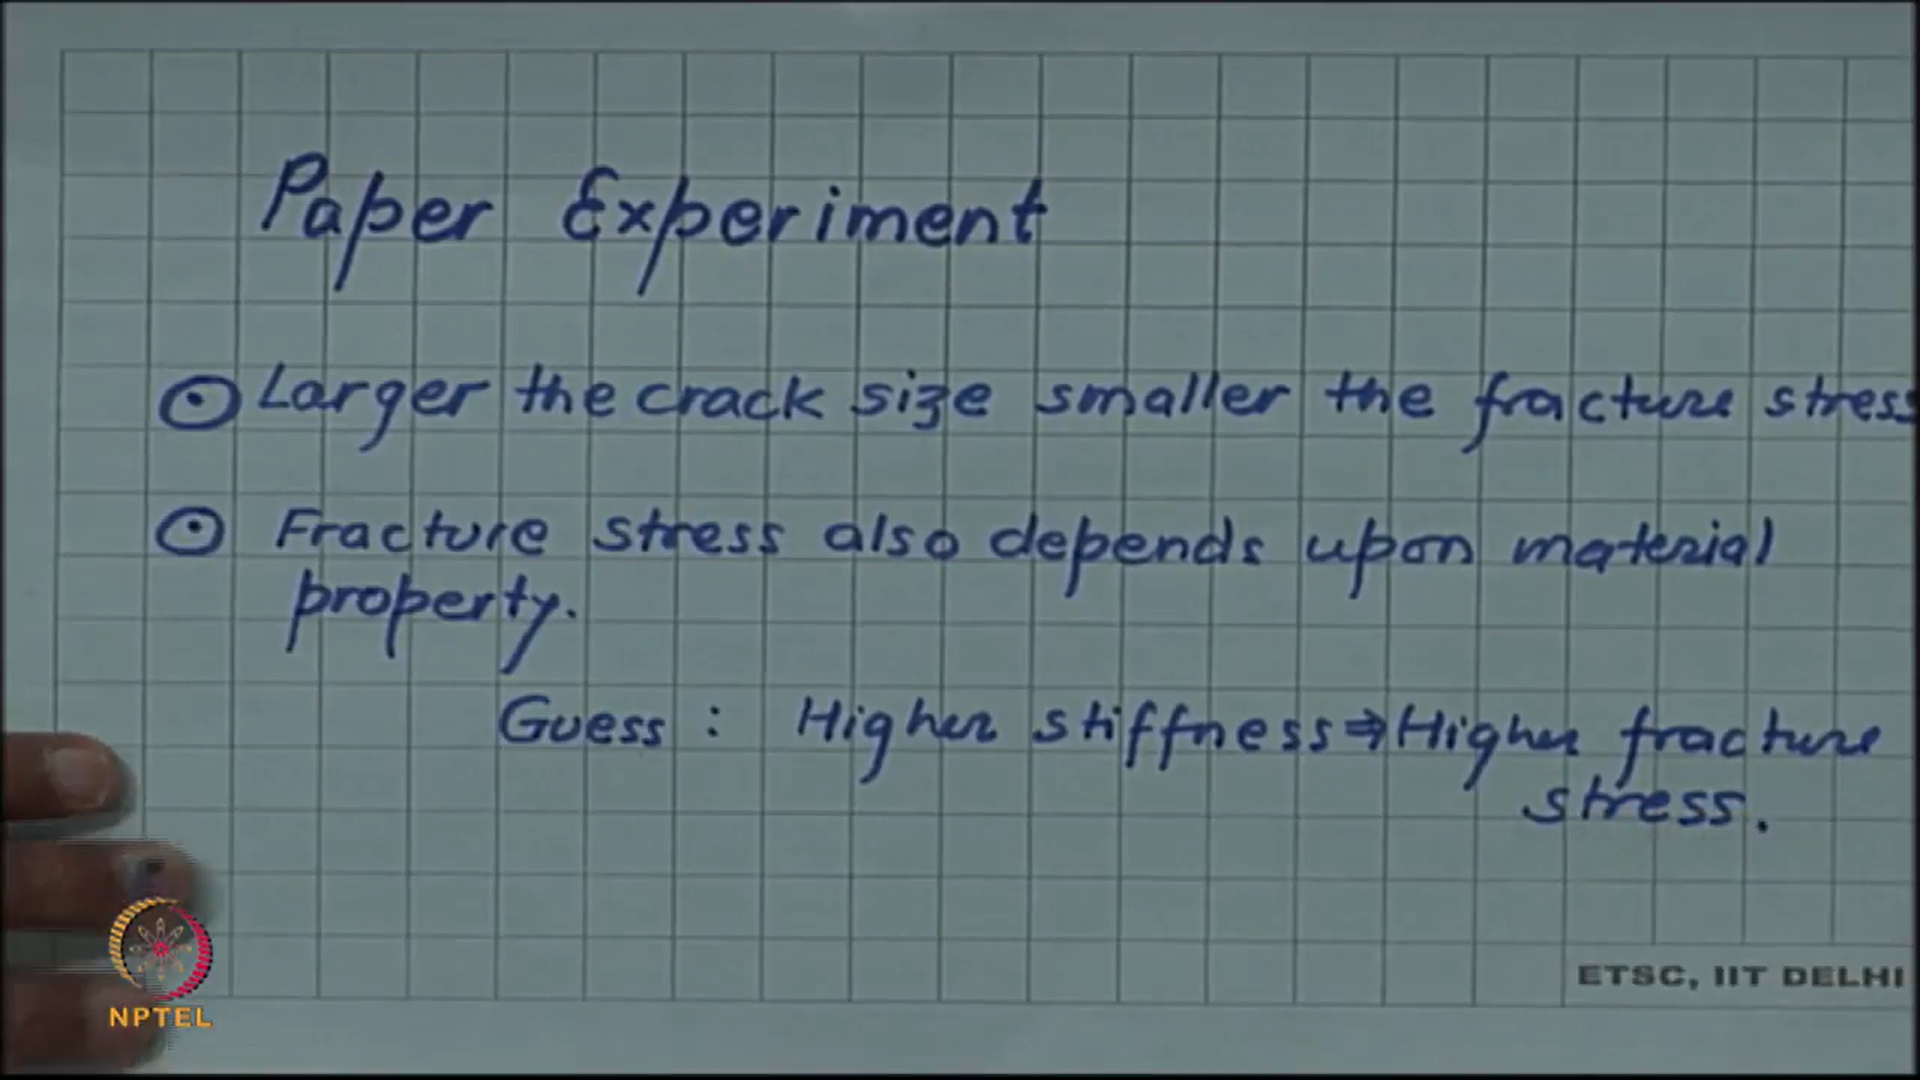 Paper Experiment
Larger the crack size smaller the fracture stress
Fracture stress also depends upon material
property.
Guess : Higher stiffness ⇒ Higher fracture
stress.
ETSC, IIT DELHI
NPTEL